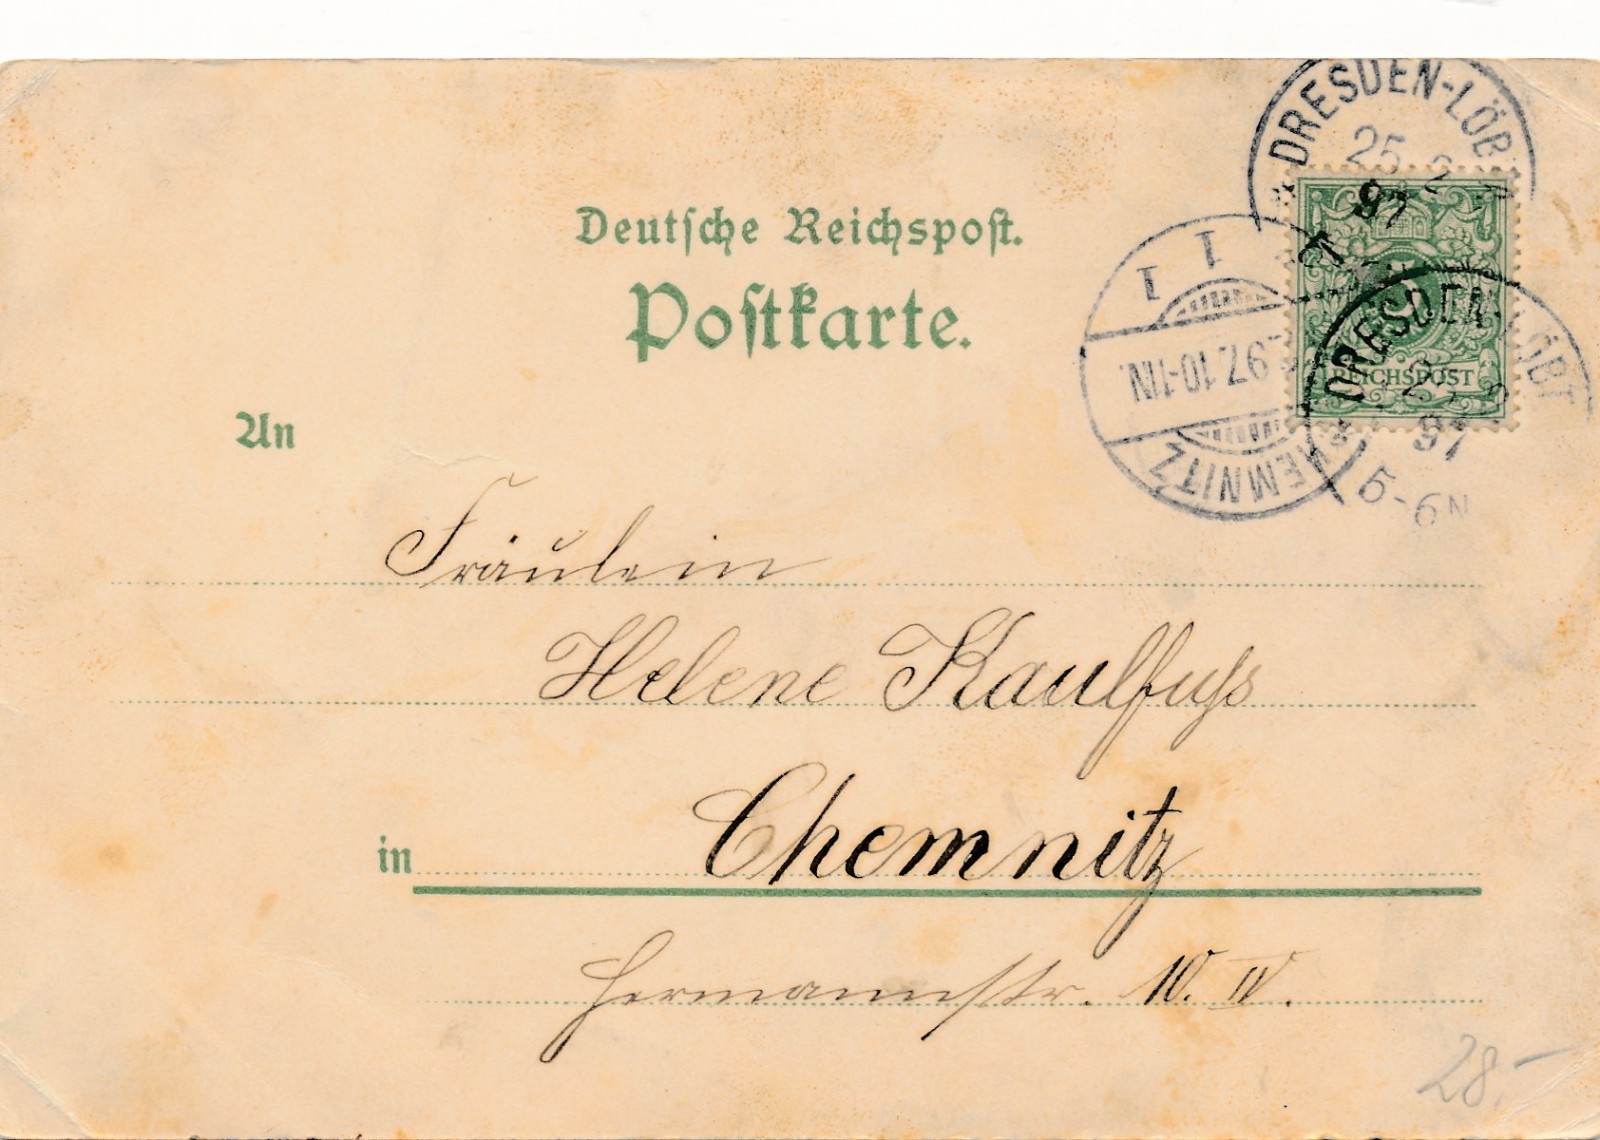 DRESDEN-LÖBT
25 2
97
Deutsche Reichspost.
Postkarte.
1 1
.97.10-11N.
CHEMNITZ
REICHSPOST
DRESDEN-LÖBT
97
5-6N
An
Fräulein
Helene Kaulfuß
in Chemnitz
Hermannstr. 10. IV.
28.-